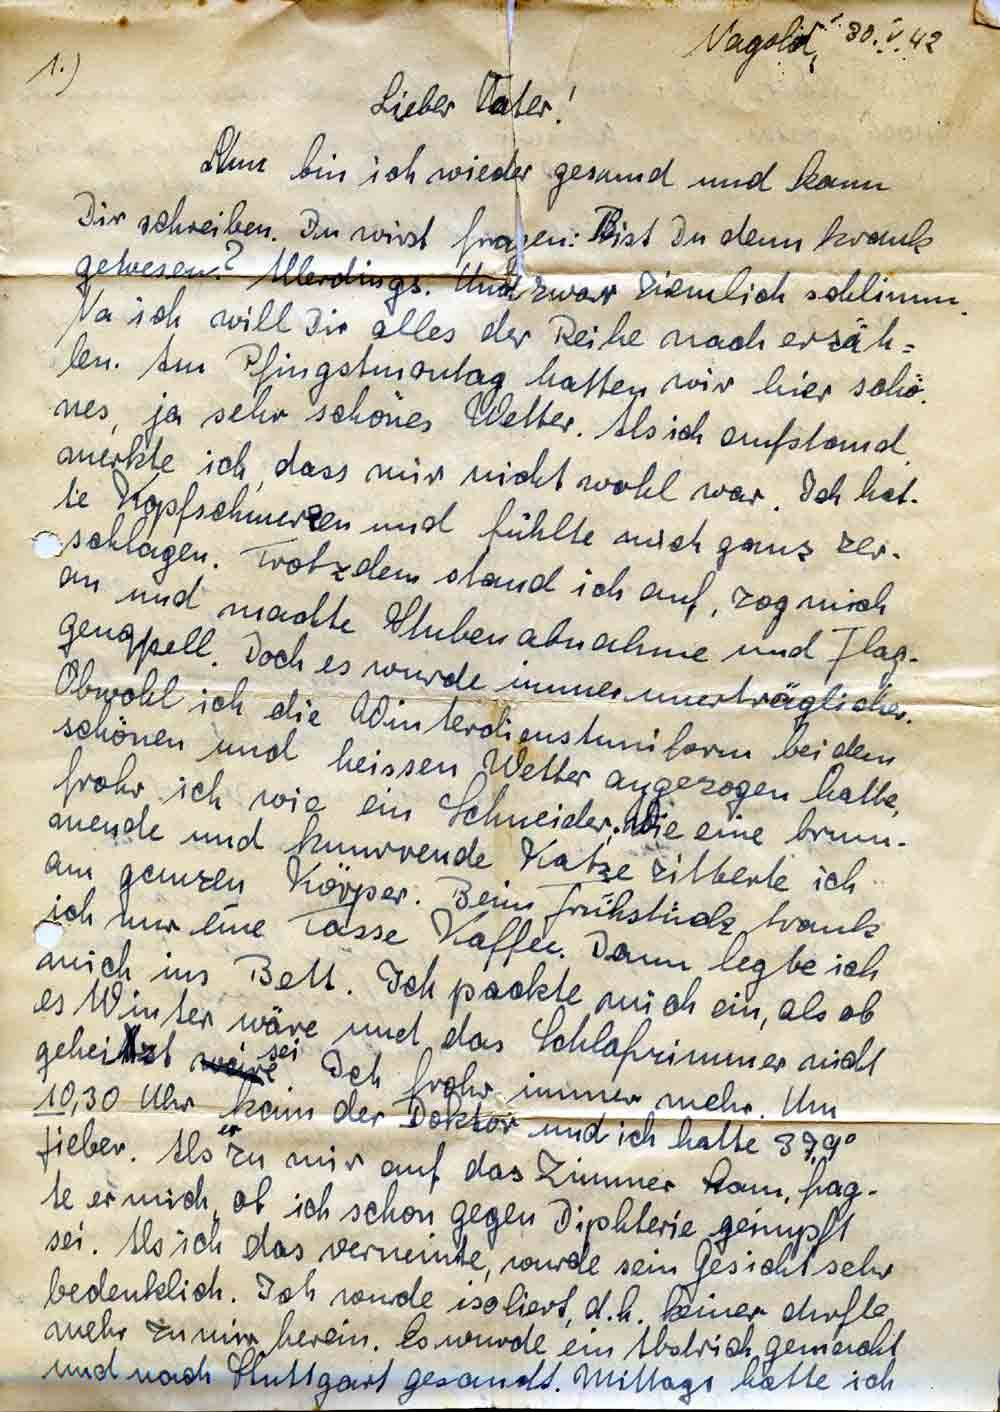 Nagold, 30. V. 42
1.)
Lieber Vater!
Nun bin ich wieder gesund und kann
Dir schreiben. Du wirst fragen: Bist Du denn krank
gewesen? Allerdings. Und zwar ziemlich schlimm.
Na ich will Dir alles der Reihe nach erzäh=
len. Am Pfingstmontag hatten wir hier schö-
nes, ja sehr schönes Wetter. Als ich aufstand,
merkte ich, dass mir nicht wohl war. Ich hat-
te Kopfschmerzen und fühlte mich ganz zer-
schlagen. Trotzdem stand ich auf, zog mich
an und machte Stubenabnahme und Flag-
genappell. Doch es wurde immer unerträglicher.
Obwohl ich die Winterdienstuniform bei dem
schönen und heissen Wetter angezogen hatte,
frohr ich wie ein Schneider. Wie eine brum-
mende und knurrende Katze zitterte ich
am ganzen Körper. Beim Frühstück trank
ich nur eine Tasse Kaffee. Dann legte ich
mich ins Bett. Ich packte mich ein, als ob
es Winter wäre und das Schlafzimmer nicht
geheizt wäre sei. Ich frohr immer mehr. Um
10,30 Uhr kam der Doktor und ich hatte 39,9°
Fieber. Als er zu mir auf das Zimmer kam, frag-
te er mich, ob ich schon gegen Diphterie geimpft
sei. Als ich das verneinte, wurde sein Gesicht sehr
bedenklich. Ich wurde isoliert, d.h. keiner durfte
mehr zu mir herein. Es wurde ein Abstrich gemacht
und nach Stuttgart gesandt. Mittags hatte ich